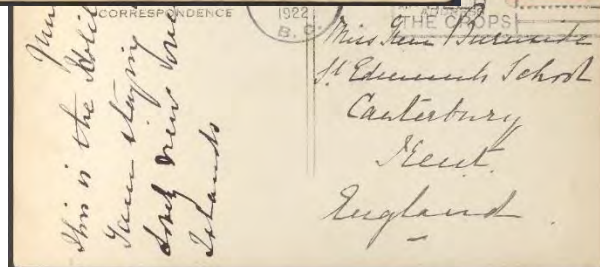 CORRESPONDENCE
1922
B.C.
THE CROPS
This is the
I am staying
view
Islands
Miss
St Edmunds School
Canterbury
Kent.
England